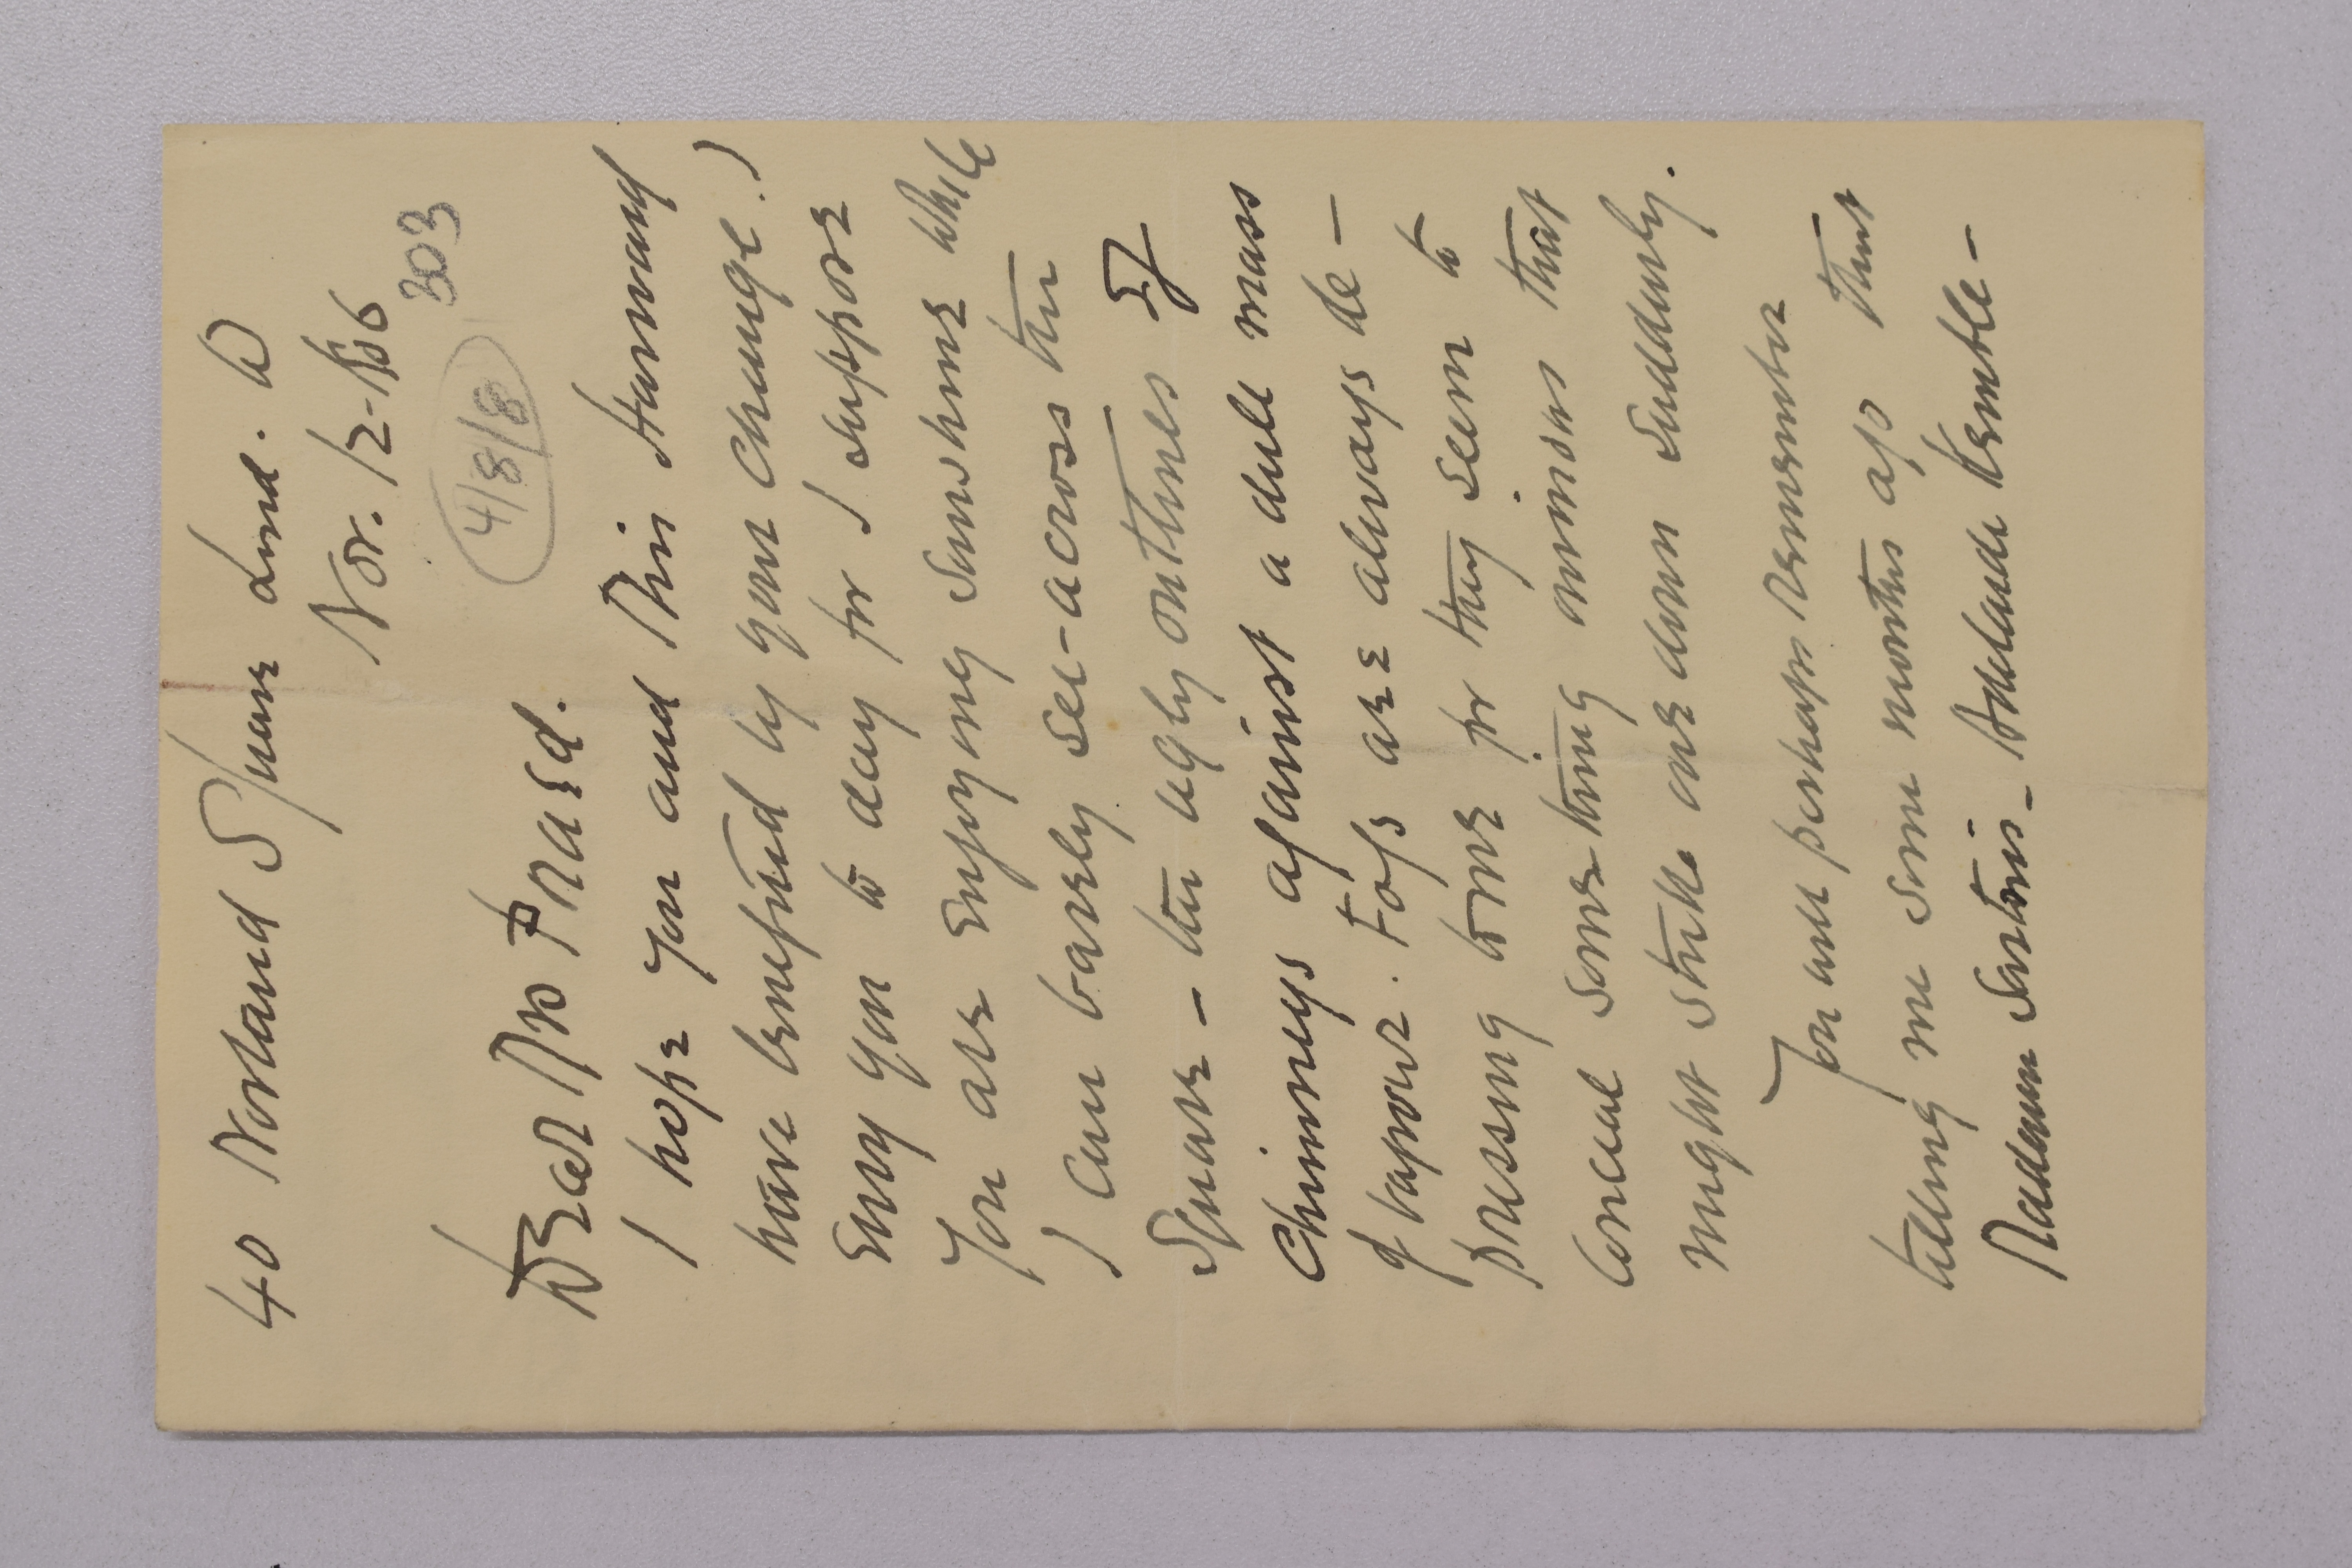 40 Norland Square Lond. W
Nov. 12-86
303
4/8/8
Dear Mrs Praed.
I hope you and Miss Harward
have benefited by your change. I
envy you to day for I suppose
you are enjoying sunshine while
I can barely see-across the
Square - the ugly outlines of
Chimneys against a dull mass
of vapour. Fogs are always de-
pressing to me for they seem to
conceal something ominous that
might strike one down suddenly.
You will perhaps remember
telling me some months ago that
Madam Sartoris - Adelaide Kemble -